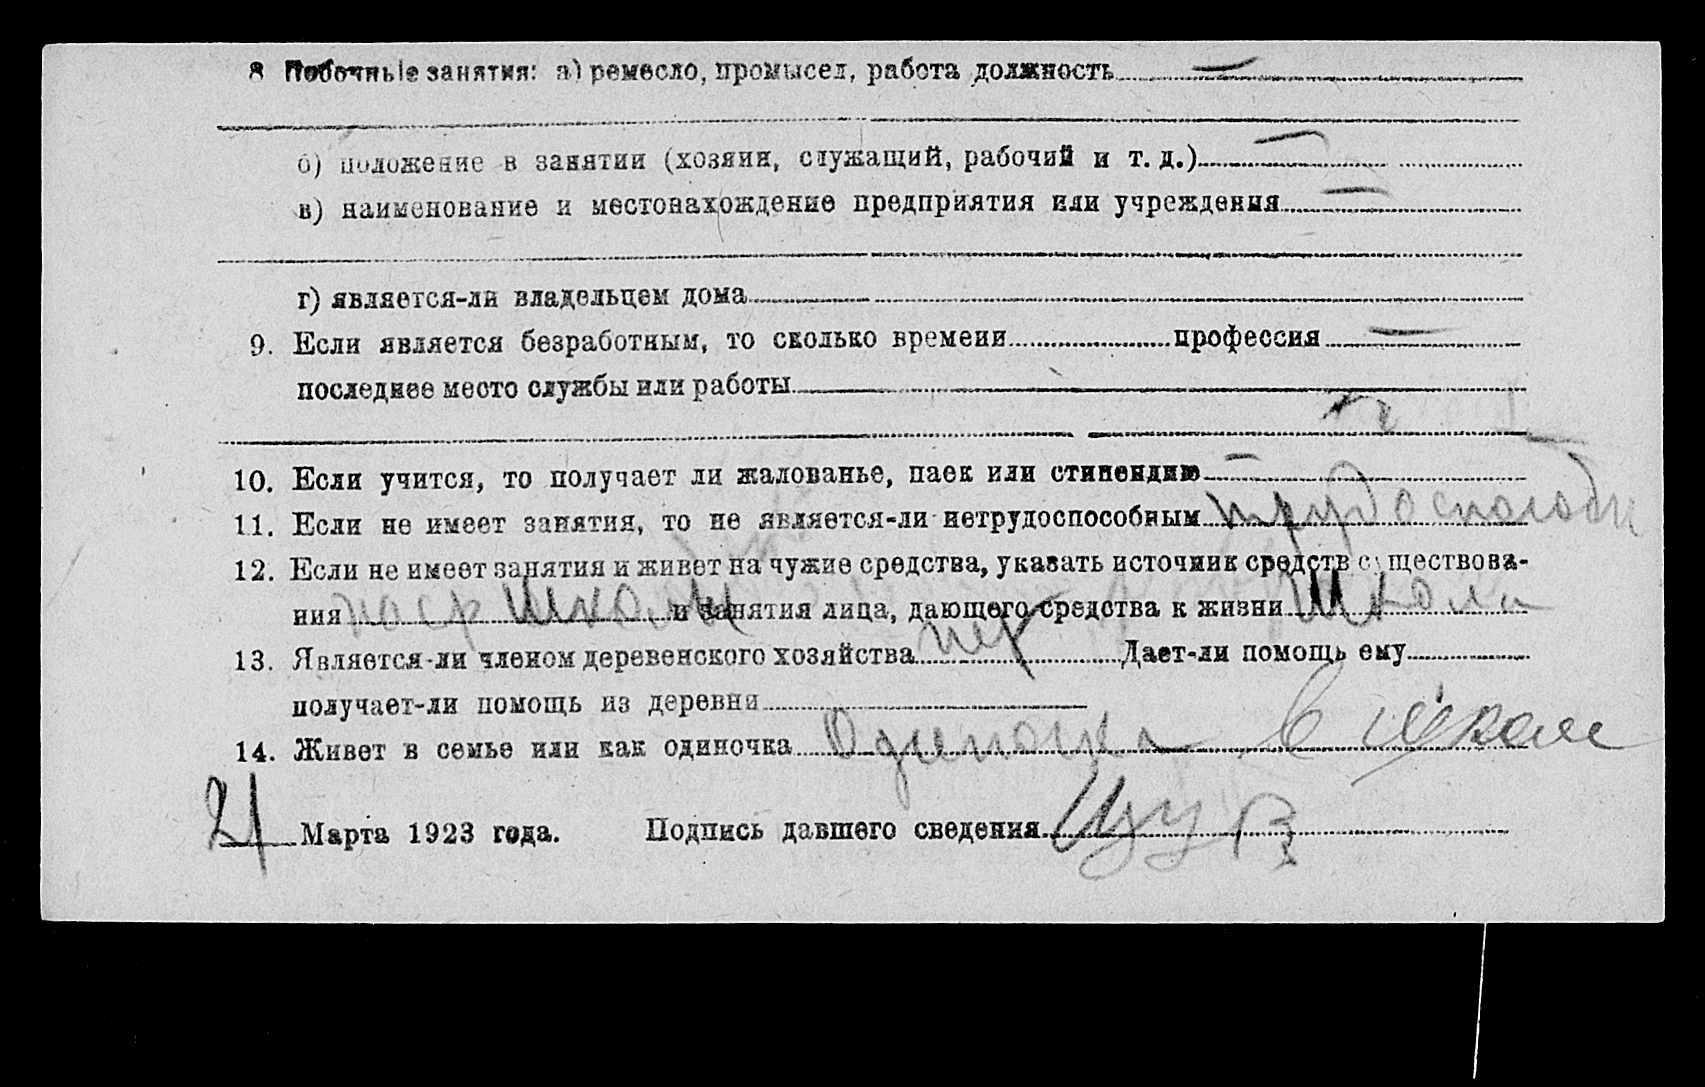 8 Побочные занятия: а) ремесло, промысел, работа должность —
б) положение в занятии (хозяин, служащий, рабочий и т. д.) —
в) наименование и местонахождение предприятия или учреждения —
г) является-ли владельцем дома
9. Если является безработным, то сколько времени профессия —
последнее место службы или работы
10. Если учится, то получает ли жалованье, паек или стипендию —
11. Если не имеет занятия, то не является-ли нетрудоспособным трудоспособн
12. Если не имеет занятия и живет на чужие средства, указать источник средств существова-
ния школы и занятия лица, дающего средства к жизни школа
13. Является-ли членом деревенского хозяйства нет Дает-ли помощь ему
получает-ли помощь из деревни
14. Живет в семье или как одиночка Одиночка в школе
21 Марта 1923 года. Подпись давшего сведения